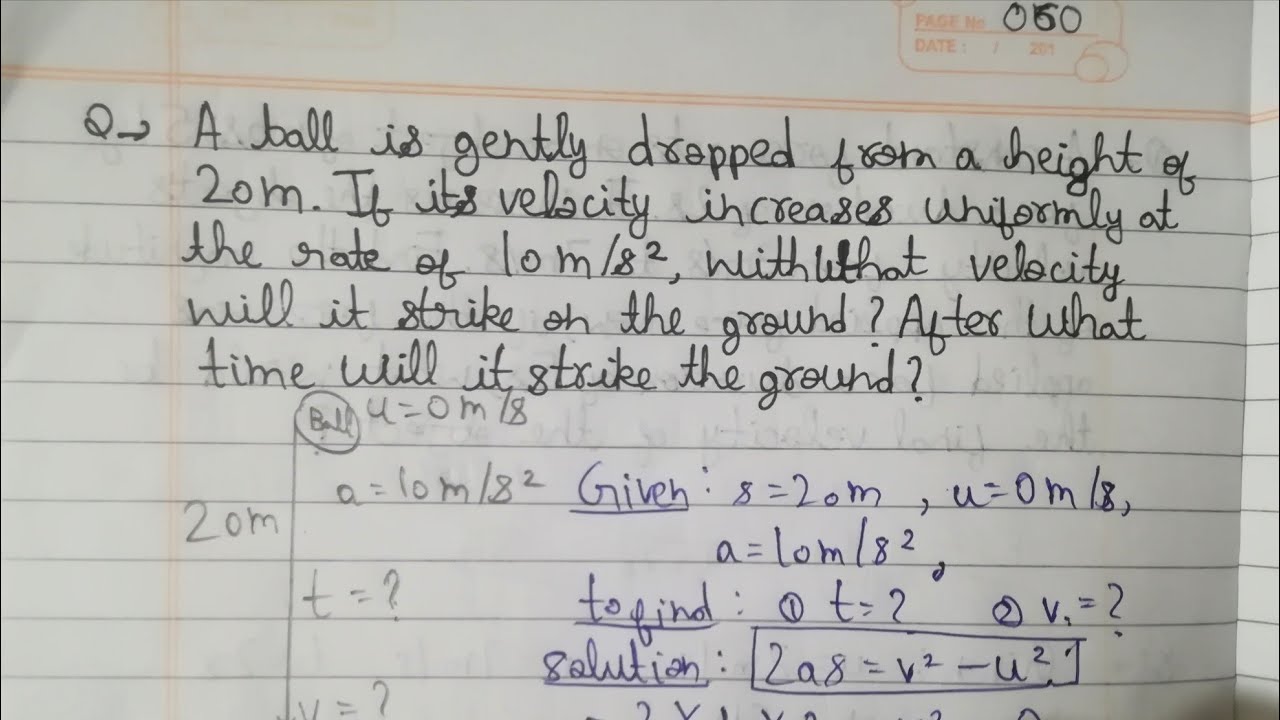 PAGE No 060
DATE: / 201
Q→ A ball is gently dropped from a height of
20m. If its velocity increases uniformly at
the rate of 10 m/s², with what velocity
will it strike on the ground? After what
time will it strike the ground?
Ball u=0m/s
a=10m/s² Given: s=20m, u=0m/s,
20m
a=10m/s²,
t=? to find: ① t=? ② v,=?
solution: 2as=v²-u²
v=?